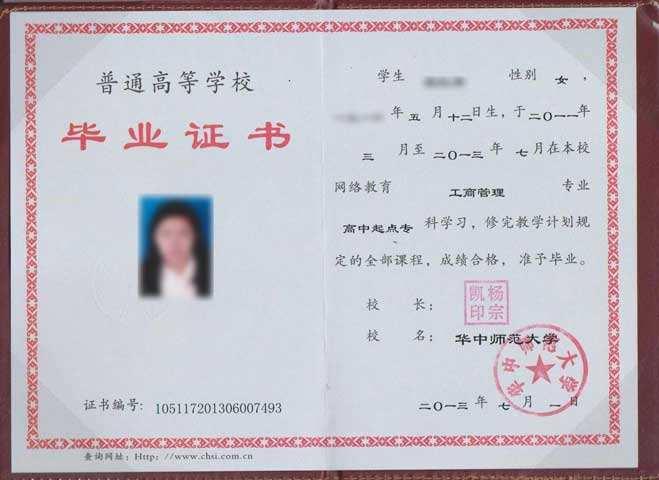 普通高等学校
毕业证书
证书编号: 105117201306007493
查询网址: Http: //www.chsi.com.cn
学生 性别 女,
年五月十二日生,于二〇一一年
三月至二〇一三年七月在本校
网络教育 工商管理 专业
高中起点专科学习,修完教学计划规
定的全部课程,成绩合格,准予毕业。
校长: 杨宗凯印
校名: 华中师范大学
华中师范大学
二〇一三年七月一日